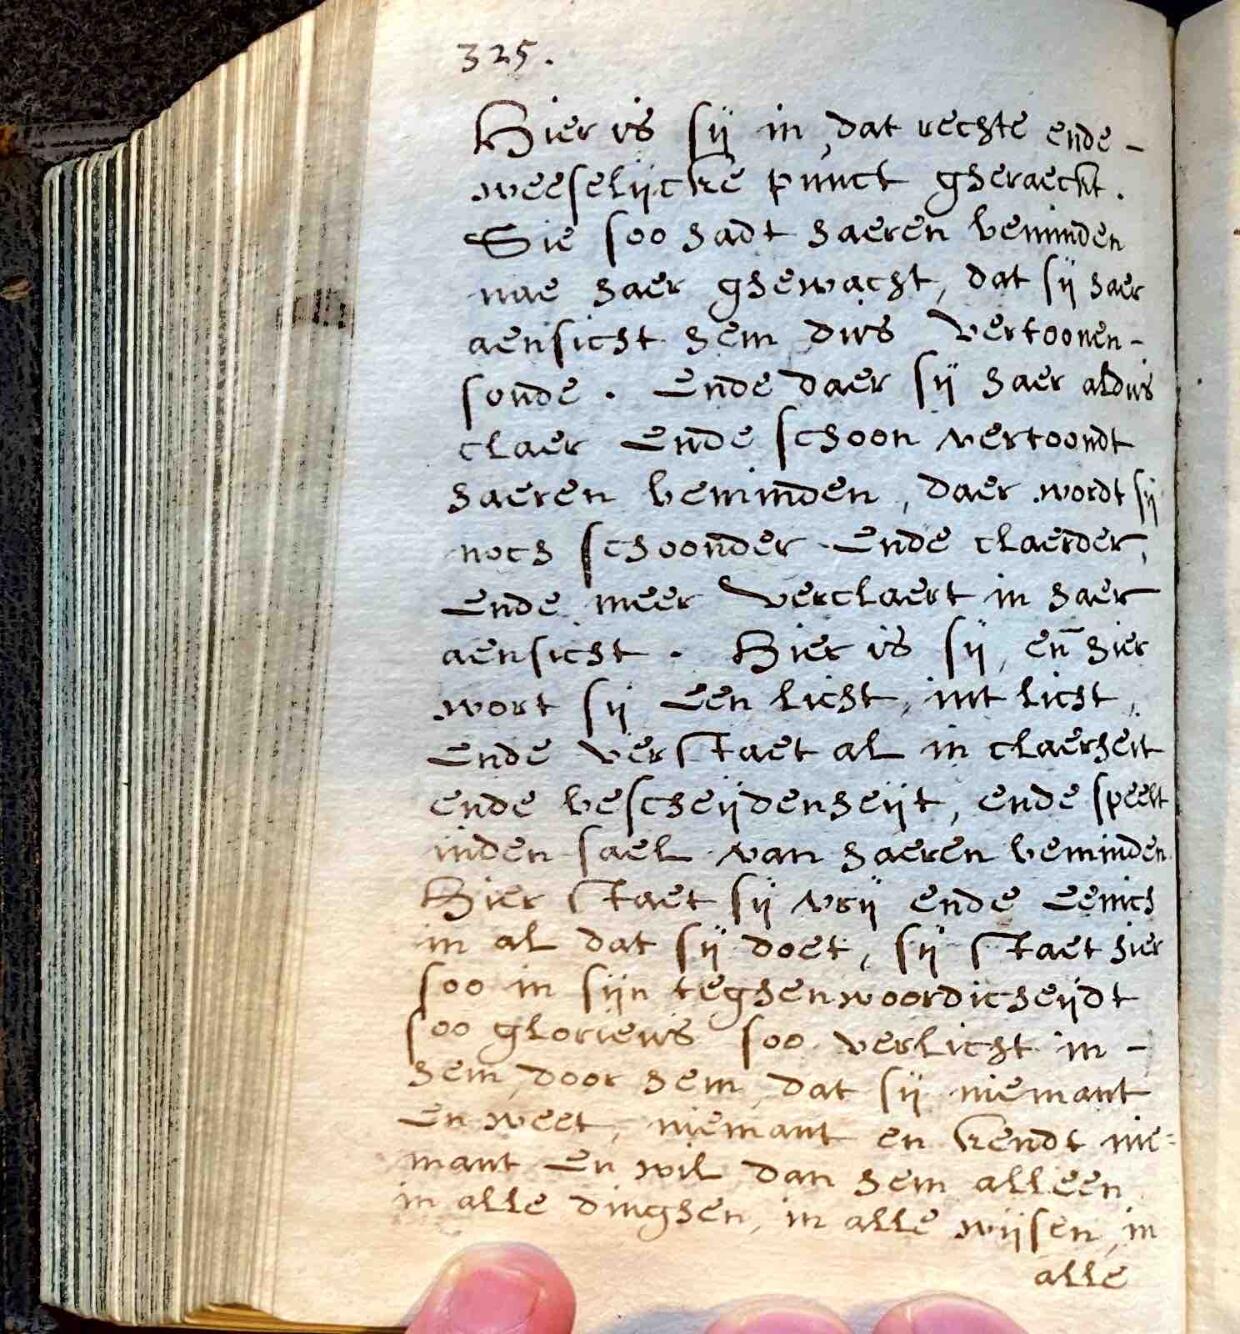 325.
Hier is sij in dat rechte ende-
weeselijcke punct gheraeckt.
Sie soo hadt haeren beminden
nae haer ghewacht, dat sij haer
aensicht hem dus vertoonen-
soude. Ende daer sij haer aldus
claer Ende schoon vertoondt
haeren beminden, daer wordt sij
noch schoonder Ende claerder,
Ende meer verclaert in haer
aensicht. Hier is sij, en̄ hier
wort sij Een licht, int licht,
Ende verstaet al in claerheit
ende bescheijdenheijt, ende speelt
inden sael van haeren beminden
Hier staet sij vrij ende Eenich
in al dat sij doet, sij staet hier
soo in sijn teghenwoordicheijdt
soo glorieus soo verlicht in-
hem door hem, dat sij niemant
En weet, niemant en kendt nie=
mant En wil dan hem alleen
in alle dinghen, in alle wijsen, in
alle